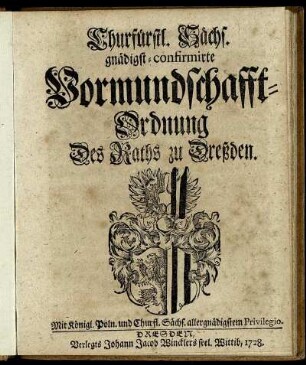 Churfürstl. Sächs.
gnädigst-confirmirte
Vormundschafft-
Ordnung
Des Raths zu Dreßden.
Mit Königl. Poln. und Churfl. Sächs. allergnädigstem Privilegio.
DRESDEN,
Verlegts Johann Jacob Wincklers seel. Wittib, 1728.